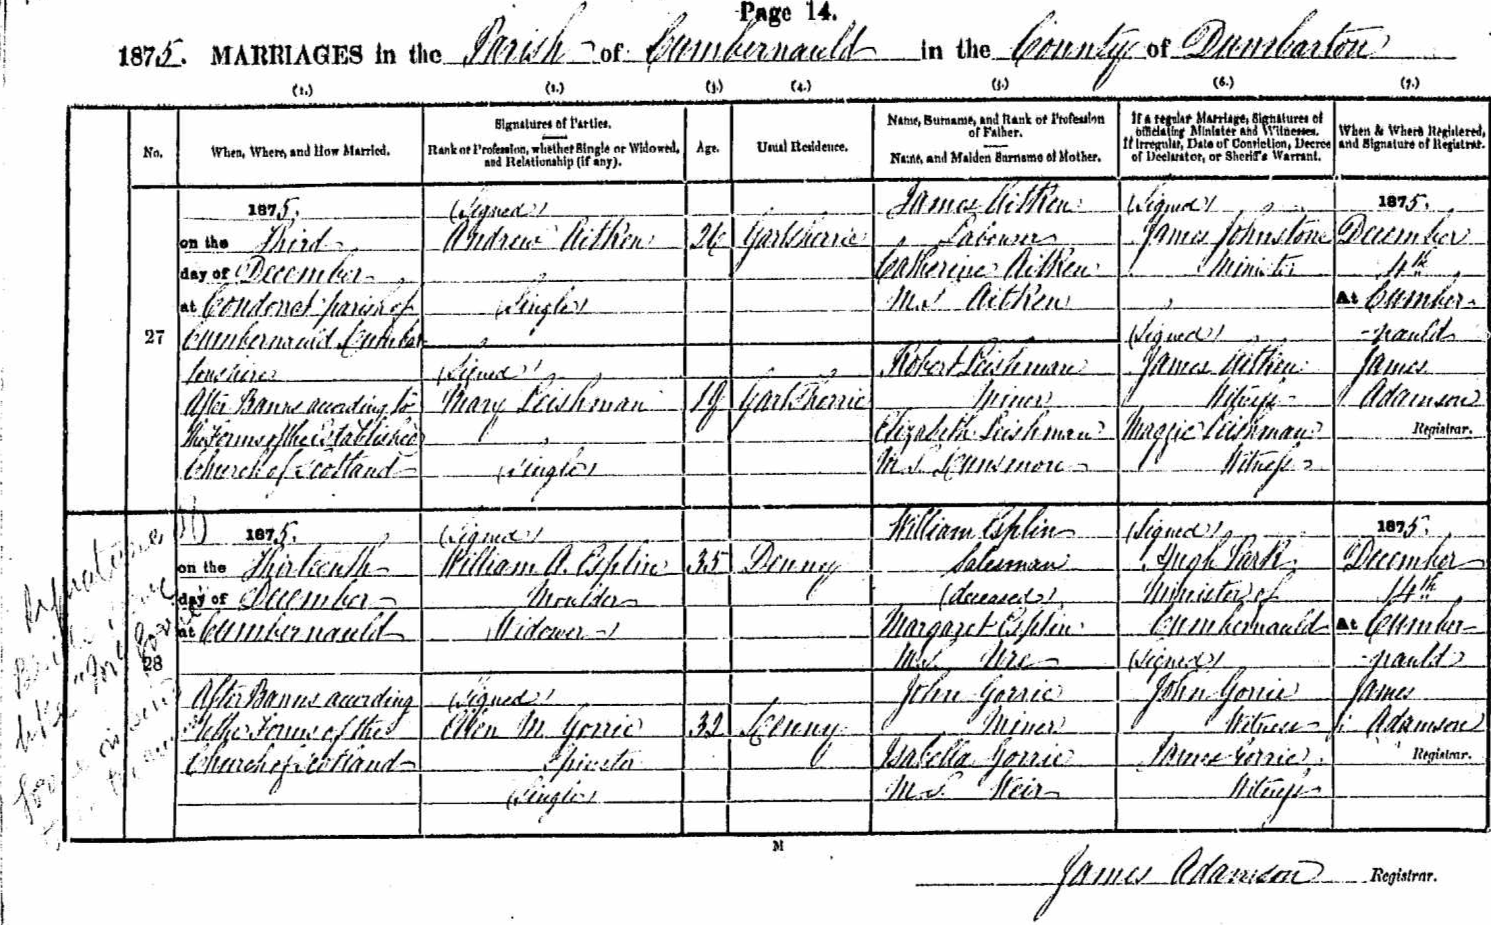 Page 14.
1875. MARRIAGES in the Parish of Cumbernauld in the County of Dumbarton
(1.) (2.) (3.) (4.) (5.) (6.) (7.)
No.
When, Where, and How Married.
Signatures of Parties.
Rank or Profession, whether Single or Widowed,
and Relationship (if any).
Age.
Usual Residence.
Name, Surname, and Rank or Profession
of Father.
Name, and Maiden Surname of Mother.
If a regular Marriage, Signatures of
officiating Minister and Witnesses.
If irregular, Date of Conviction, Decree
of Declarator, or Sheriff's Warrant.
When & Where Registered,
and Signature of Registrar.
27
1875.
on the Third
day of December
at Condorrat parish of
Cumbernauld Dumbar
tonshire
After Banns according to
the Forms of the Established
Church of Scotland
(Signed)
Andrew Aitken
(Single)
(Signed)
Mary Leishman
(Single)
26
19
Gartsherrie
Gartsherrie
James Aitken
Labourer
Catherine Aitken
M.S. Aitken
Robert Leishman
Miner
Elizabeth Leishman
M.S. Dunsmore
(Signed)
James Johnstone
Minister
(Signed)
James Aitken
Witness
Maggie Leishman
Witness
1875.
December
4th
At Cumber-
-nauld
James
Adamson
Registrar.
28
1875.
on the Thirteenth
day of December
at Cumbernauld
After Banns according
to the Forms of the
Church of Scotland
(Signed)
William A. Esplin
Moulder
Widower
(Signed)
Ellen M. Gorrie
Spinster
(Single)
35
32
Denny
Denny
William Esplin
Salesman
(deceased)
Margaret Esplin
M.S. Ure
John Gorrie
Miner
Isabella Gorrie
M.S. Weir
(Signed)
Hugh Park
Minister of
Cumbernauld
(Signed)
John Gorrie
Witness
James Gorrie
Witness
1875.
December
14th
At Cumber-
-nauld
James
Adamson
Registrar.
Signature
M
James Adamson Registrar.